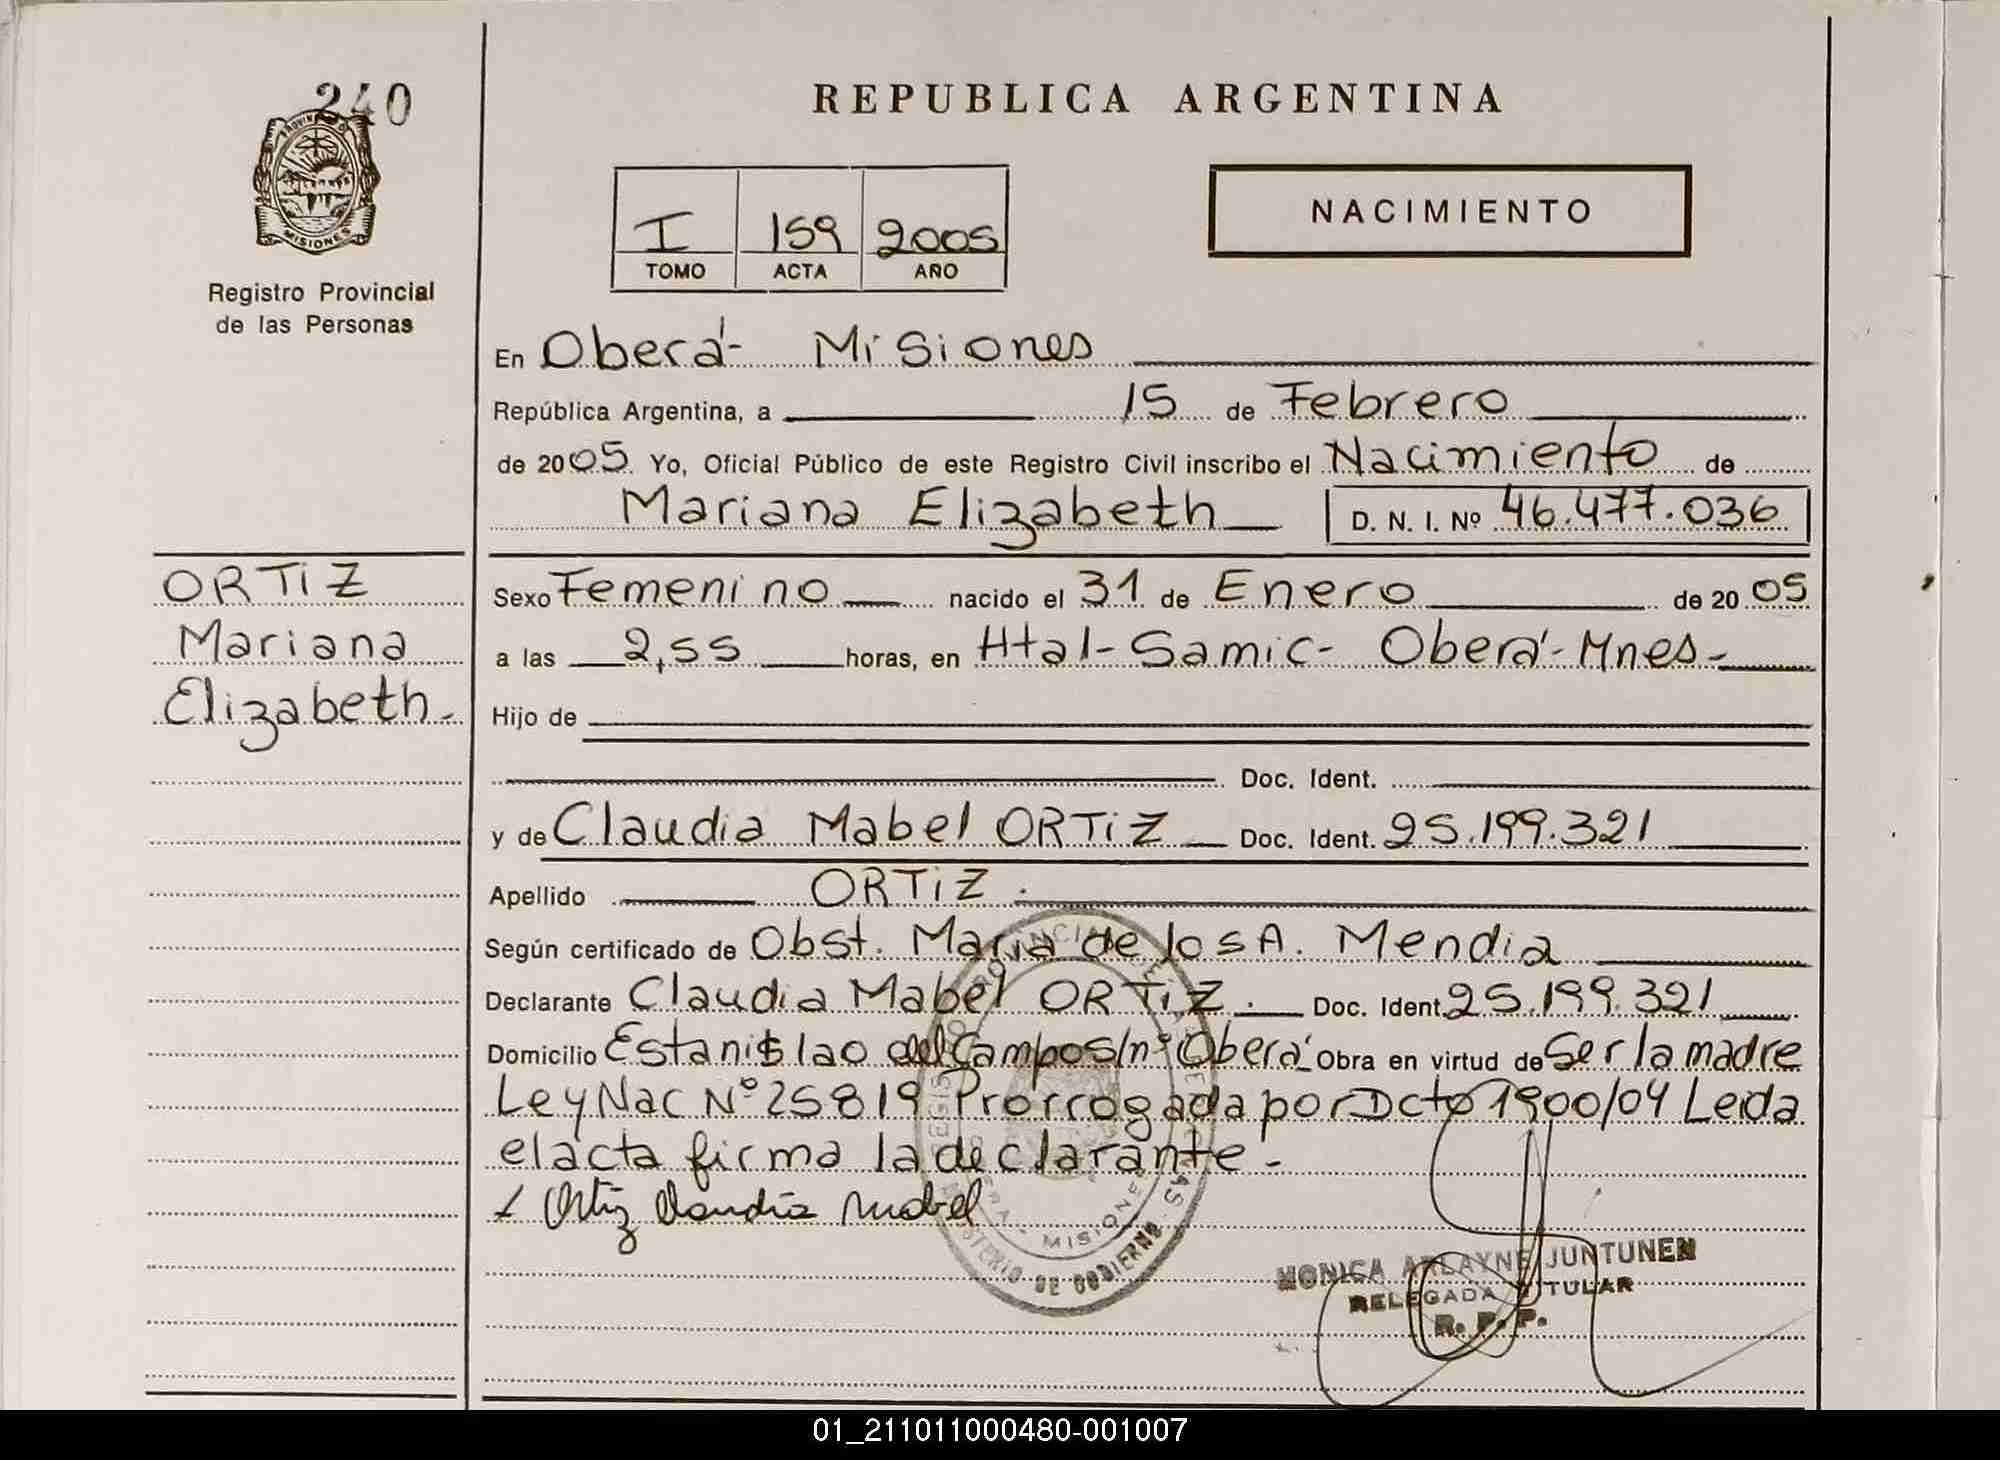 240
PROVINCIA DE
MISIONES
Registro Provincial
de las Personas
REPUBLICA ARGENTINA
I 159 2005
TOMO ACTA AÑO
NACIMIENTO
En Oberá- Misiones
República Argentina, a 15 de Febrero
de 2005. Yo, Oficial Público de este Registro Civil inscribo el Nacimiento de
Mariana Elizabeth D. N. I. Nº 46.477.036
ORTIZ
Mariana
Elizabeth.
Sexo Femenino nacido el 31 de Enero de 2005
a las 2,55 horas, en Htal- Samic- Oberá- Mnes-
Hijo de
Doc. Ident.
y de Claudia Mabel ORTIZ Doc. Ident. 25.199.321
Apellido ORTIZ.
Según certificado de Obst. Maria de los A. Mendia
Declarante Claudia Mabel ORTIZ. Doc. Ident. 25.199.321
Domicilio Estanislao del Campo s/nº Oberá- Obra en virtud de Ser la madre
Ley Nac Nº 25819 Prorrogada por Dcto 1900/04 Leida
el acta firma la declarante-
Ortiz Claudia Mabel
MISIONES
MINISTERIO DE GOBIERNO
MONICA ARLAYNE JUNTUNEN
DELEGADA TITULAR
R. P. P.
01_211011000480-001007